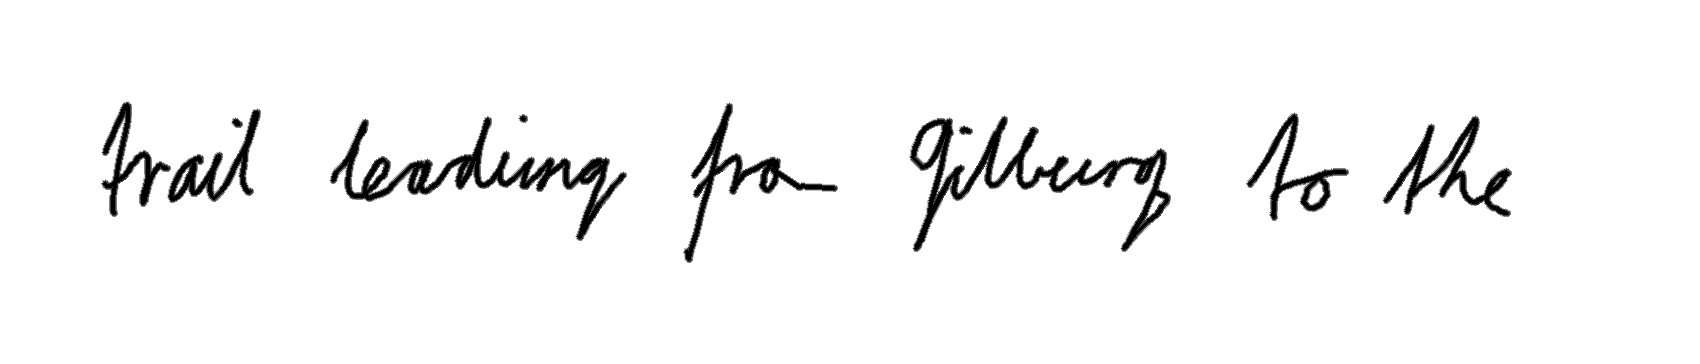 trail leading from Gilburg to the